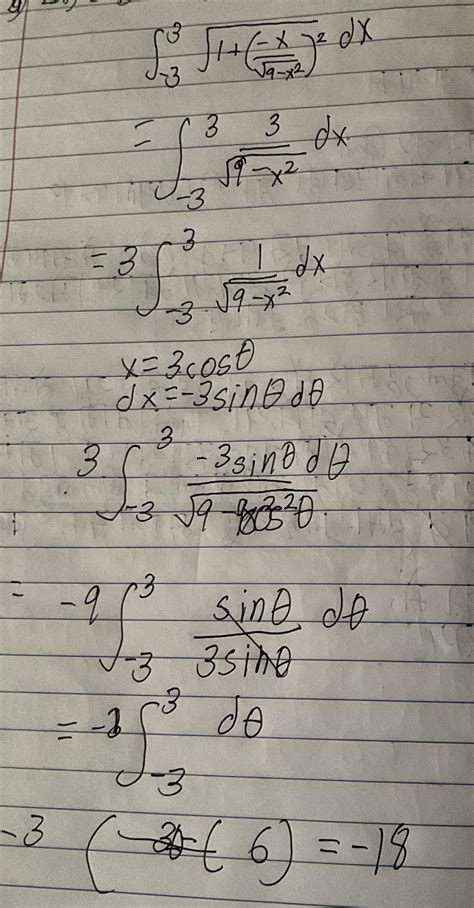 ∫₋₃³ √(1+(-x/√(9-x²))²) dx
= ∫₋₃³ 3/√(9-x²) dx
= 3 ∫₋₃³ 1/√(9-x²) dx
x=3cosθ
dx=-3sinθ dθ
3 ∫₋₃³ -3sinθ dθ/√(9-9cos²θ)
= -9 ∫₋₃³ sinθ/3sinθ dθ
= -3 ∫₋₃³ dθ
-3 (6) = -18